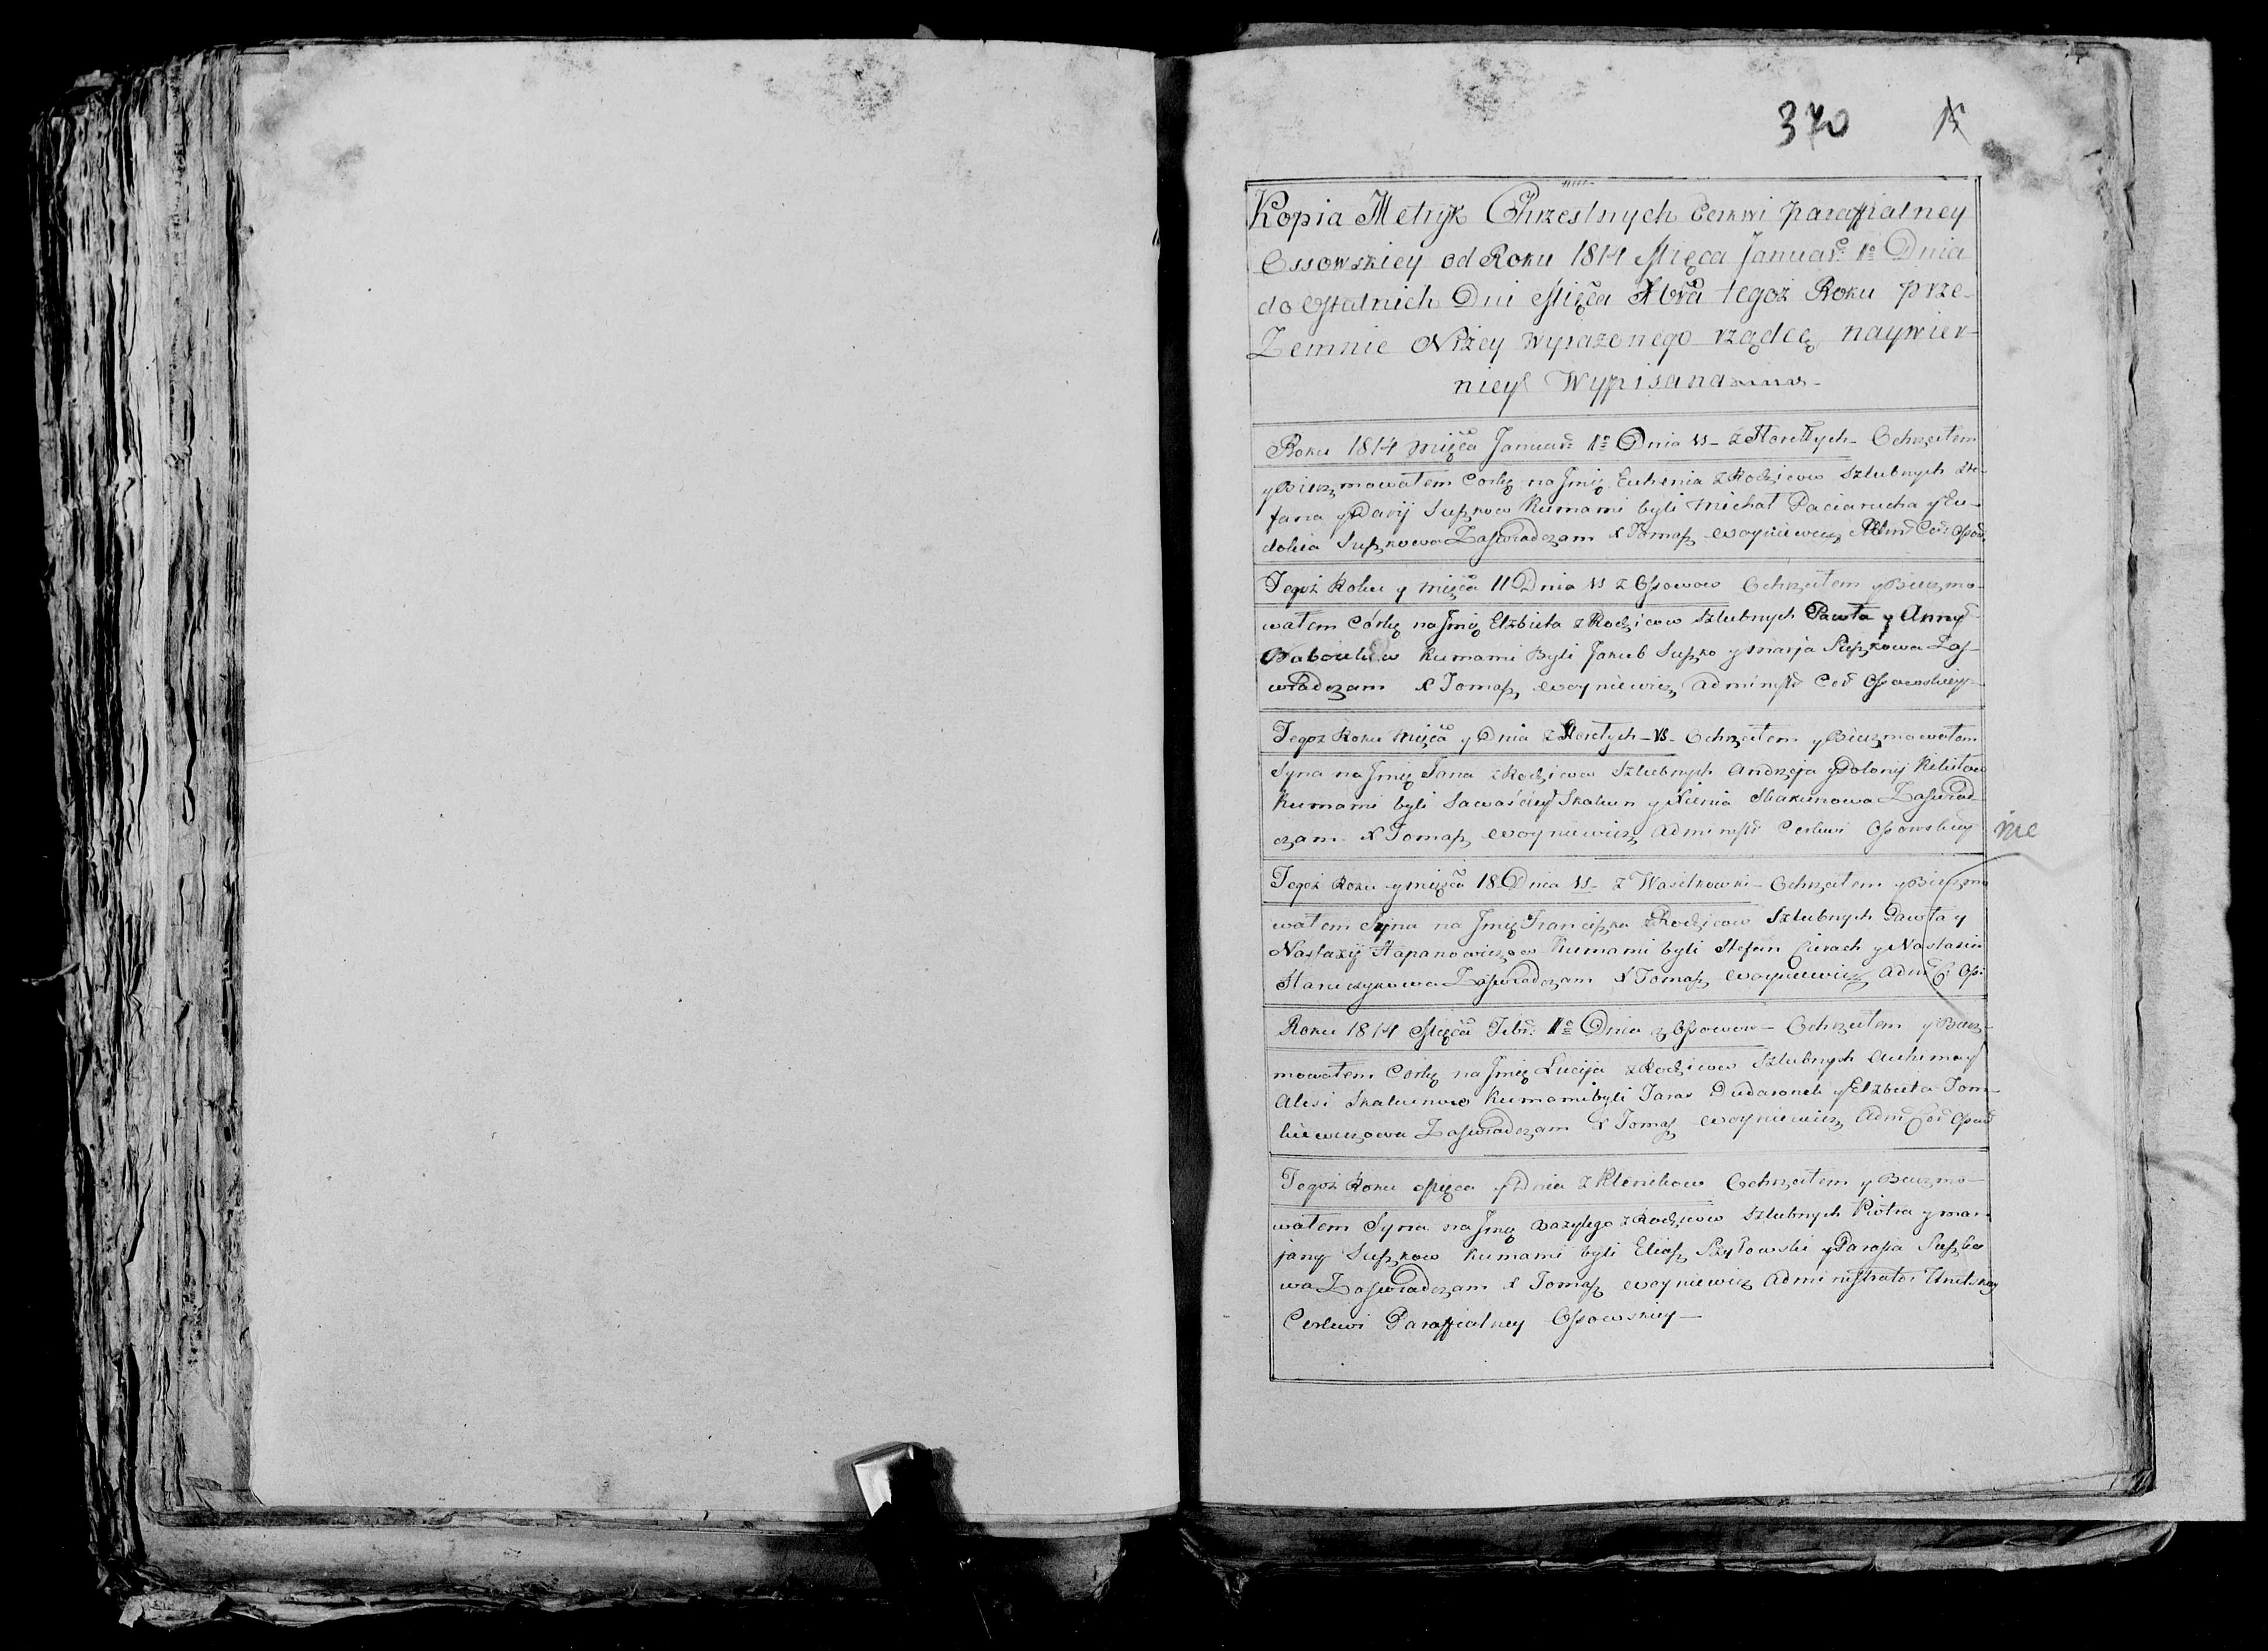 370
Kopia Metryk Chrzestnych Cerkwi Paraffialney
Ossowskiey od Roku 1814 Mięca Januar: 1º Dnia
do Ostatnich Dni Mięca Xbra tegoż Roku prze-
Zemnie Niżey Wyrażonego rządcę naywier-
niey Wypisana
Roku 1814 Mięca Januar: 1º Dnia VS Ochrzciłem
y Bierzmowałem Corkę na Jmię Euhenia z Rodzicow Szlubnych Ste-
fana y Daryi Suszkow Kumami byli Michał Paciarucha y Eu-
dokia Suszkowa Zaświadczam X Tomasz Woyniewicz
Tegoż Roku y Mięca 11 Dnia VS z Ossowow Ochrzciłem y Bierzmo-
wałem Córkę na Jmię Elżbieta z Rodzicow Szlubnych Pawła y Anny
Kumami Byli Jakub Suszko y Marja Suszkowa Zaś-
wiadczam X Tomasz Woyniewicz Administr Cer Ossowskiey
Tegoż Roku Mięca y Dnia VS Ochrzciłem y Bierzmowałem
Syna na Jmię Jana z Rodzicow Szlubnych Andrzeja y
Kumami byli Skakun y Xienia Skakunowa Zaświad-
czam X Tomasz Woyniewicz Administr Cerkwi Ossowskiey
Tegoż Roku y Mięca 18 Dnia VS z Wasilkowki Ochrzciłem y Bierzmo
wałem Syna na Jmię Franciszka z Rodzicow Szlubnych Pawła y
Nastazyi Stapanowiczow Kumami byli Stefan y Nastasia
Zaświadczam X Tomasz Woyniewicz
Roku 1814 Mięca Febr: 1º Dnia z Ossowow Ochrzciłem y Bierz-
mowałem Corkę na Jmię Lucija z Rodzicow Szlubnych Auhima y
Alesi Skakunow Kumami byli Taras Dudaronek y Elżbieta Tom-
kiewiczowa Zaświadczam X Tomasz Woyniewicz
Tegoż Roku Mięca y Dnia z Klenikow Ochrzciłem y Bierzmo-
wałem Syna na Jmię Bazylego z Rodzicow Szlubnych Piotra y Mar-
jany Suszkow Kumami byli Eliasz Szyłowski y Parasia Suszko
wa Zaświadczam X Tomasz Woyniewicz Administrator Unitskey
Cerkwi Paraffialney Ossowskiey